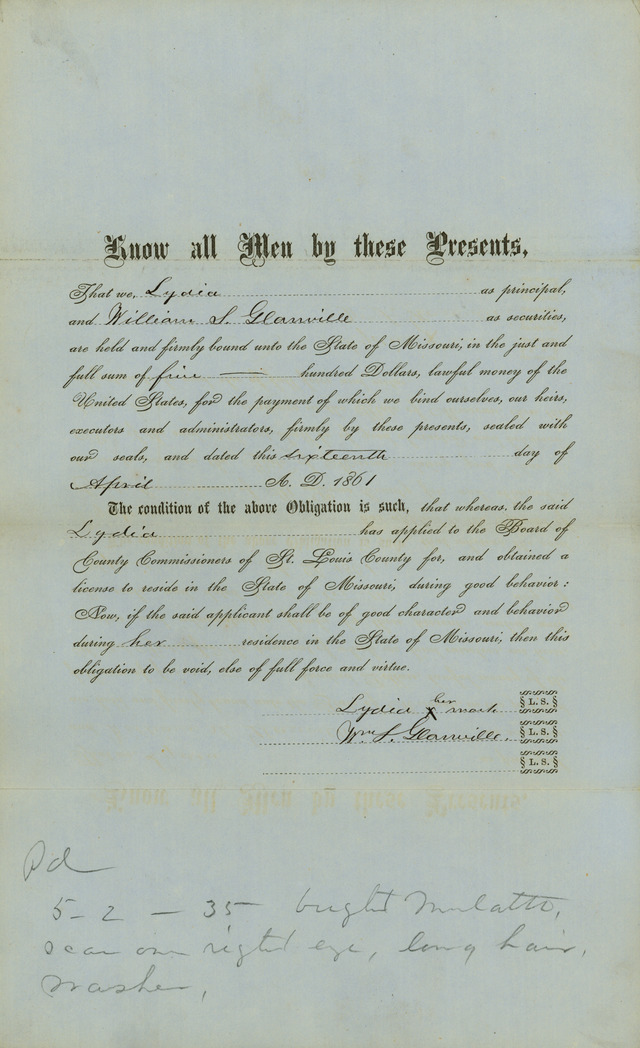 Know all Men by these Presents,
That we, Lydia as principal,
and William S. Glanville as securities,
are held and firmly bound unto the State of Missouri, in the just and
full sum of five — hundred Dollars, lawful money of the
United States, for the payment of which we bind ourselves, our heirs,
executors and administrators, firmly by these presents, sealed with
our seals, and dated this sixteenth day of
April A. D. 1861
The condition of the above Obligation is such, that whereas, the said
Lydia has applied to the Board of
County Commissioners of St. Louis County for, and obtained a
license to reside in the State of Missouri, during good behavior:
Now, if the said applicant shall be of good character and behavior
during her residence in the State of Missouri, then this
obligation to be void, else of full force and virtue.
Lydia her x mark § L. S. §
Wm S. Glanville. § L. S. §
§ L. S. §
Pd
5-2 - 35 bright Mulatto,
scar over right eye, long hair,
washer,